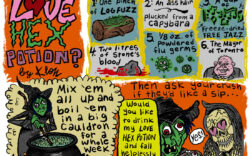 LOVE
HEX
POTION?
1. One pinch
of LOGFUZZ
2. An ASS hair
plucked from a
CAPYBARA
4. Two litres
of Stone's
blood
5. 1/8 oz of
Powdered
glam
FREE JAZZ
6. The Mayor
of Toronto
Mix 'em
all up and
boil 'em
in a big
cauldron
for a
whole
week
Then ask your crush
if they'd like a sip...
Would
you like
to drink
my LOVE
HEX POTION
and fall
helplessly
YOS!